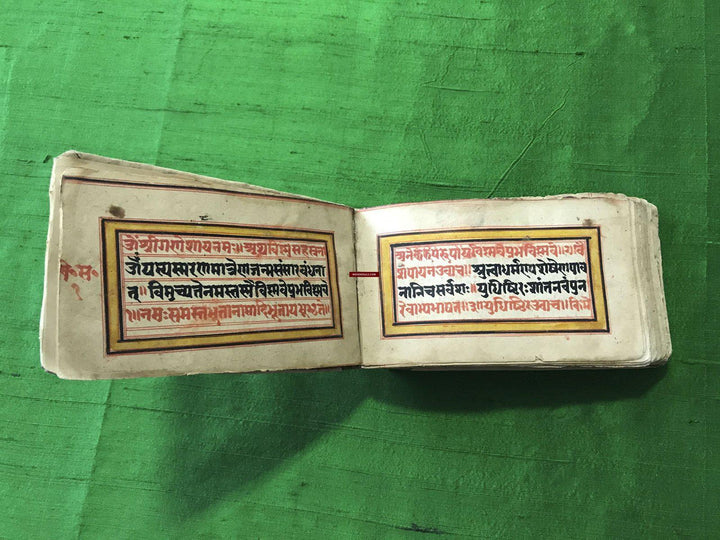 वि॰स॰
१
ॐश्रीगणेशायनमः॥अथविष्णुसहस्रना
ॐयस्यस्मरणमात्रेणजन्मसंसारबंधना
त्॥विमुच्यतेनमस्तस्मैविष्णवेप्रभविष्णवे
१॥नमःसमस्तभूतानामादिभूतायभूभृते॥
अनेकरूपरूपायविष्णवेप्रभविष्णवे॥२॥वै
शंपायनउवाच॥श्रुत्वाधर्मानशेषेणपाव
नानिचसर्वशः॥युधिष्ठिरःशांतनवंपुन
रेवाभ्यभाषत॥३॥युधिष्ठिरउवाच॥किमे